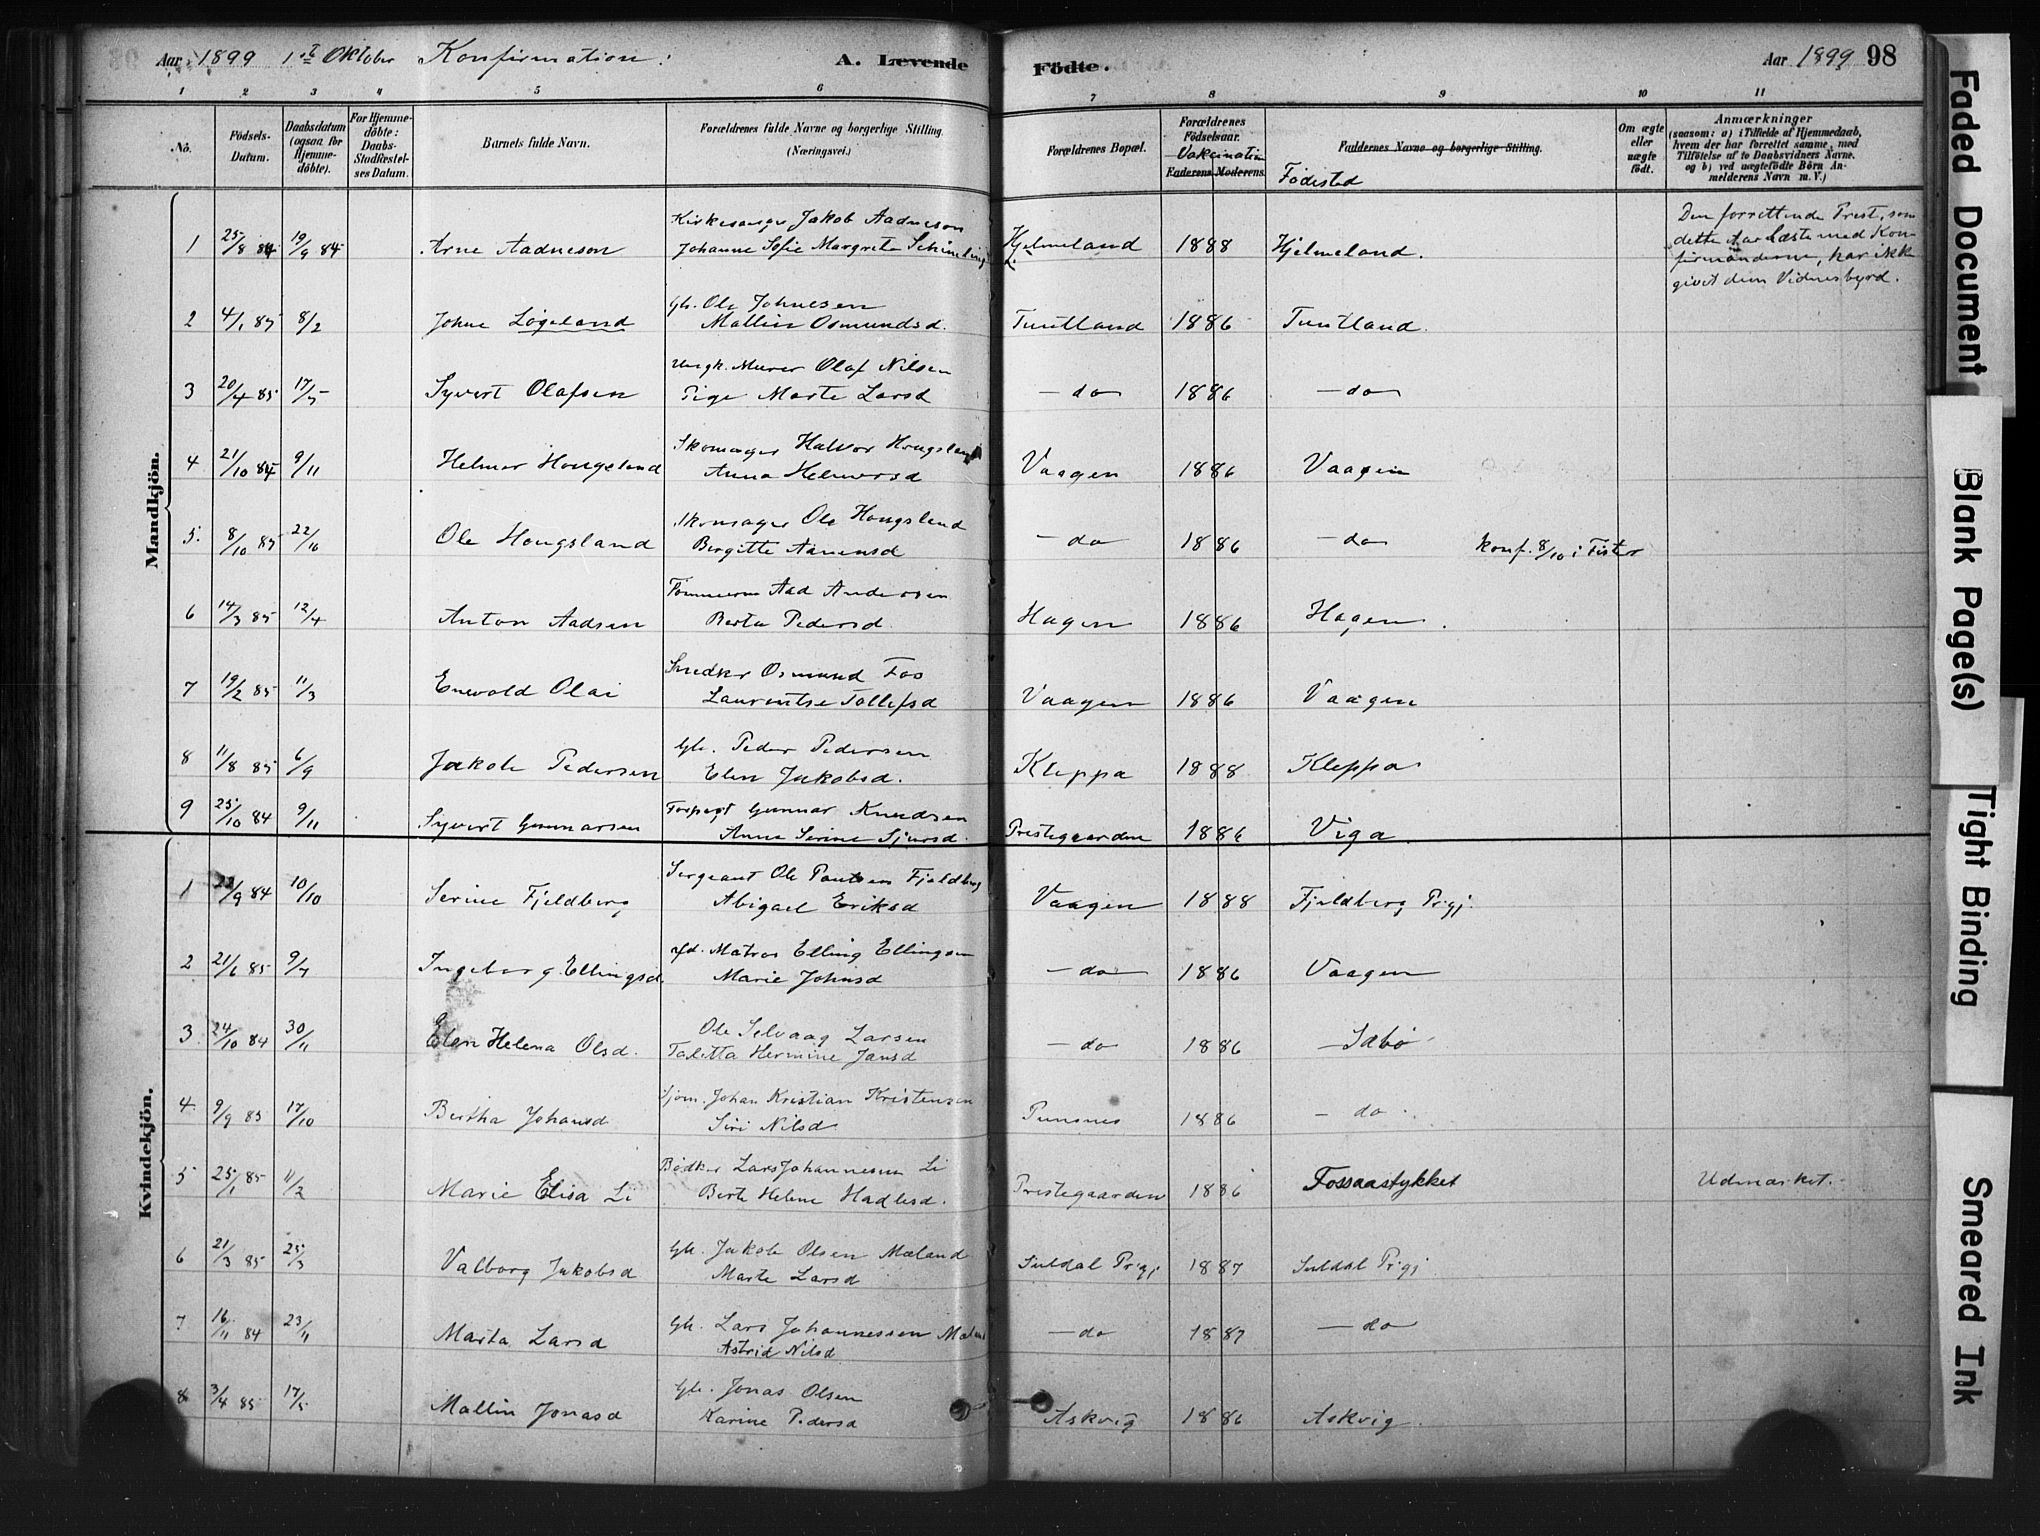 Aar 1899 1st Oktober Konfirmation: A. Levende Födte. Aar 1899 98
1 2 3 4 5 6 7 8 9 10 11
No. Födsels-Datum. Daabsdatum (ogsaa for Hjemme-döbte). For Hjemme-döbte: Daabs-Stadfæstel-ses Datum. Barnets fulde Navn. Forældrenes fulde Navne og borgerlige Stilling. (Næringsvei.) Forældrenes Bopæl. Forældrenes Födselsaar. Vakcination Faderens Moderens. Faddernes Navne og borgerlige Stilling. Födested Om ægte eller uægte födt. Anmærkninger (saasom: a) i Tilfælde af Hjemmedaab, hvem der har forrettet samme, med Tilföielse af to Daabsvidners Navne, og b) ved uægtefödte Börn An-melderens Navn m. V.)
Mandkjön.
1 25/8 84 19/9 84 Arne Aadneson Kirkesanger Jakob Aadneson
Johanne Sofie Margrete Hjelmeland 1888 Hjelmeland. Den forrettende Prest, som
dette Aar læste med Kon
firmanderne, har ikke
givet dem Vidnesbyrd.
2 4/1 85 8/2 Johne Løgeland Gb. Ole Johnesen
Mallin Osmundsd. Tuntland 1886 Tuntland.
3 20/4 85 17/5 Syvert Olafsen Ungk. Murer Olaf Nilsen
Pige Marte Larsd – do 1886 – do
4 21/10 84 9/11 Helmer Hougsland Skomager Halvor Hougsland
Anna Helmersd Vaagen 1886 Vaagen
5. 8/10 85 22/10 Ole Hougsland Skomager Ole Hougsland
Bergitte Aanensd – do 1886 – do konf. 8/10 i Fister
6 14/3 85 12/4 Anton Aadsen Tømmerm Aad Andersen
Berta Pedersd. Hagen 1886 Hagen.
7 19/2 85 11/3 Enevold Olai Snedker Osmund Fos
Laurentse Tollefsd Vaagen 1886 Vaagen
8 11/8 85 6/9 Jakob Pedersen Gb. Peder Pedersen
Elen Jakobsd. Kleppa 1888 Kleppa
9 25/10 84 9/11 Syvert Gunnarsen Forpagt Gunnar Knudsen
Anne Serine Sjursd. Prestegaarden 1886 Viga
Kvindekjön.
1 /9 84 10/10 Serine Fjeldberg Sergeant Ole Poulsen Fjeldberg
Abigael Eriksd Vaagen 1888 Fjeldberg Prgj.
2 21/6 85 9/7 Ingeborg Ellingsd. afd. Matros Elling Ellingsen
Marie Johnsd – do 1886 Vaagen
3 24/10 84 30/11 Elen Helena Olsd. Ole Selvaag Larsen
Taletta Hermine Jansd – do 1886 – Sæbø
4 9/9 85 17/10 Bertha Johansd Sjøm. Johan Kristian Kristensen
Siri Nilsd. Punsnes 1886 – do
5 25/1 85 11/2 Marie Elisa Li Bødker Lars Johannesen Li
Berte Helene Hadlesd. Prestegaarden 1886 Fossaastykket Udmærket.
6 21/3 85 25/3 Valborg Jakobsd Gb. Jakob Olsen Mæland
Marte Larsd Suldal Prgj 1887 Suldal Prgj
7 16/11 84 23/11 Marta Larsd Gb. Lars Johannessen
Astrid Nilsd – do 1887 – do
8 3/4 85 17/5 Mallin Jonasd Gb. Jonas Olsen
Karine Pedersd Askvig 1886 Askvig.
Faded Document
Blank Page(s)
Tight Binding
Smeared Ink